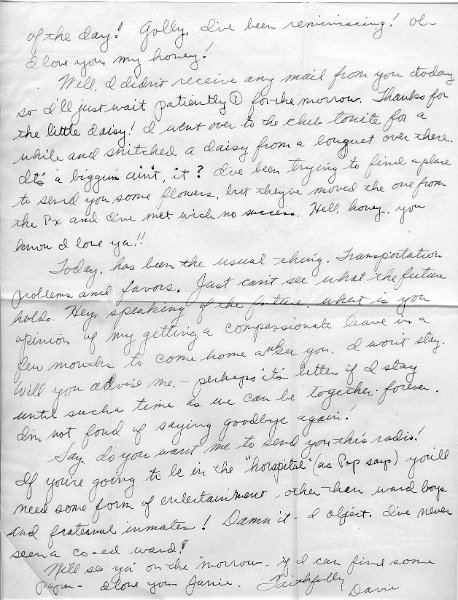 of the day! Golly, I've been reminiscing! Ol-
I love you my honey!
Well, I didn't receive any mail from you today
so I'll just wait patiently (?) for the morrow. Thanks for
the little daisy! I went over to the club tonite for a
while and snitched a daisy from a bouquet over there.
It's a biggun ain't it? I've been trying to find a place
to send you some flowers, but they've moved the one from
the Px and I've met with no success. Well, honey, you
know I love ya!!
Today, has been the usual thing. Transportation
problems and favors. Just can't see what the future
holds. Hey, speaking of the future, what is you
opinion of my getting a compassionate leave in a
few months to come home and see you. I won't stay.
Will you advise me - perhaps it's better if I stay
until such a time as we can be together forever.
I'm not fond of saying goodbye again!
Say, do you want me to send you this radio!
If you're going to be in the "horspital" (as Pop says) you'll
need some form of entertainment - other than ward boys
and fraternal inmates! Damn it - I object. I've never
seen a co-ed ward!
Will see ya' on the morrow - if I can find some
paper - I love you Janie. Faithfully
Dave